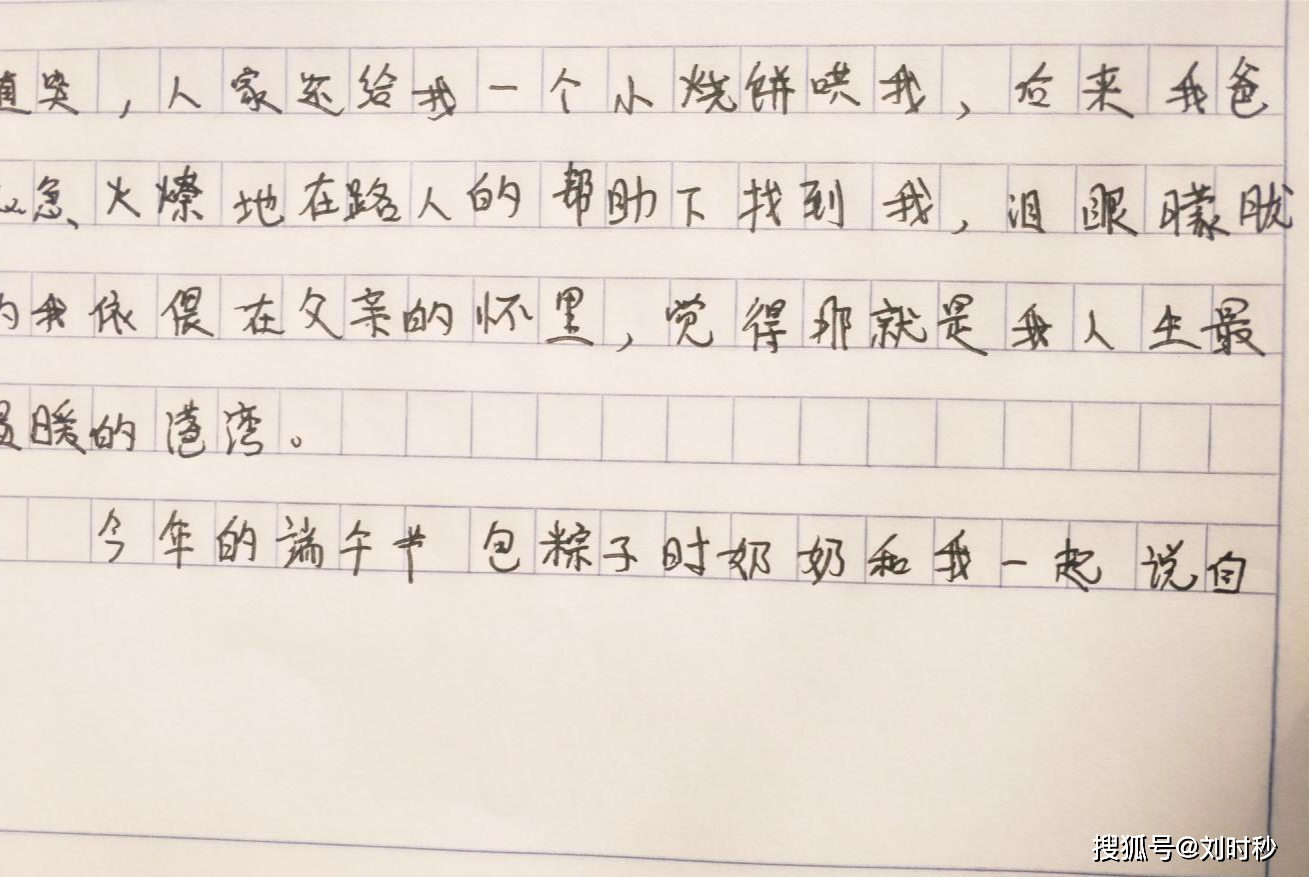 直哭，人家还给我一个小烧饼哄我，后来我爸
急火燎地在路人的帮助下找到我，泪眼朦胧
的我依偎在父亲的怀里，觉得那就是我人生最
最暖的港湾。
今年的端午节包粽子时奶奶和我一起说白
搜狐号@刘时秒